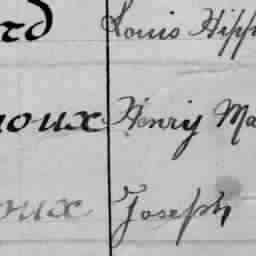 rd Louis Hipp
noux Henry Ma
oux Joseph